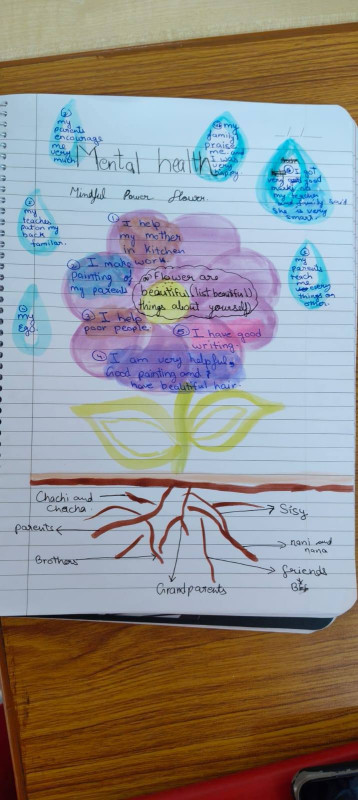 my
parents
encourage
me
very
much
my
family
praise
me and
I was
very
happy
I got
very good
marks all
my
family said
she is very
smart
Mental health
Mindful Power Flower.
my
teacher
pat on my
back
familiar.
my
parents
teach
me
every
things on
my
Ego
① I help
my mother
in kitchen
② I make
painting of
my parents
③ I help
poor people
④ I am very helpful,
Good painting and I
have beautiful hair
⑤ I have good
writing.
Flower are
beautiful (list beautiful)
things about yourself
Chachi and
Chacha
parents
Brothers
Grandparents
Sisy
nani and
nana
friends